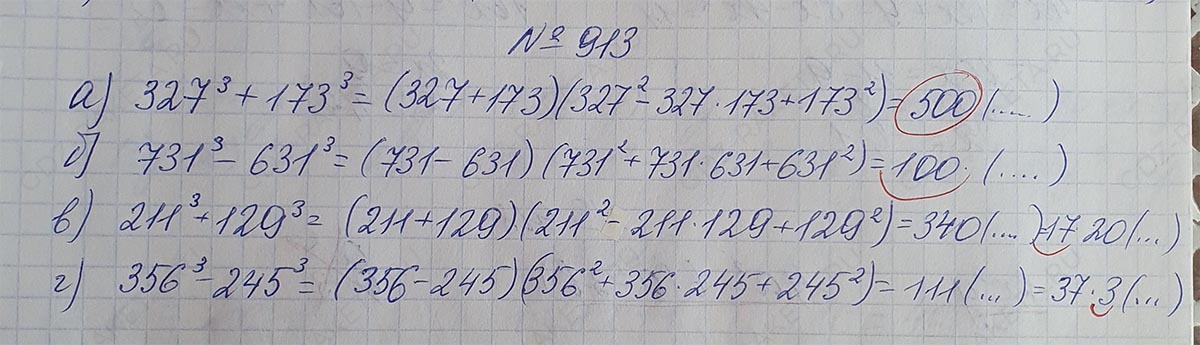 № 913
а) 327³ + 173³ = (327 + 173)(327² - 327 · 173 + 173²) = 500(....)
б) 731³ - 631³ = (731 - 631) (731² + 731 · 631 + 631²) = 100 · (....)
в) 211³ + 129³ = (211 + 129)(211² - 211 · 129 + 129²) = 340(...)=17 20(...)
г) 356³ - 245³ = (356 - 245)(356² + 356 · 245 + 245²) = 111(...) = 37 · 3(...)